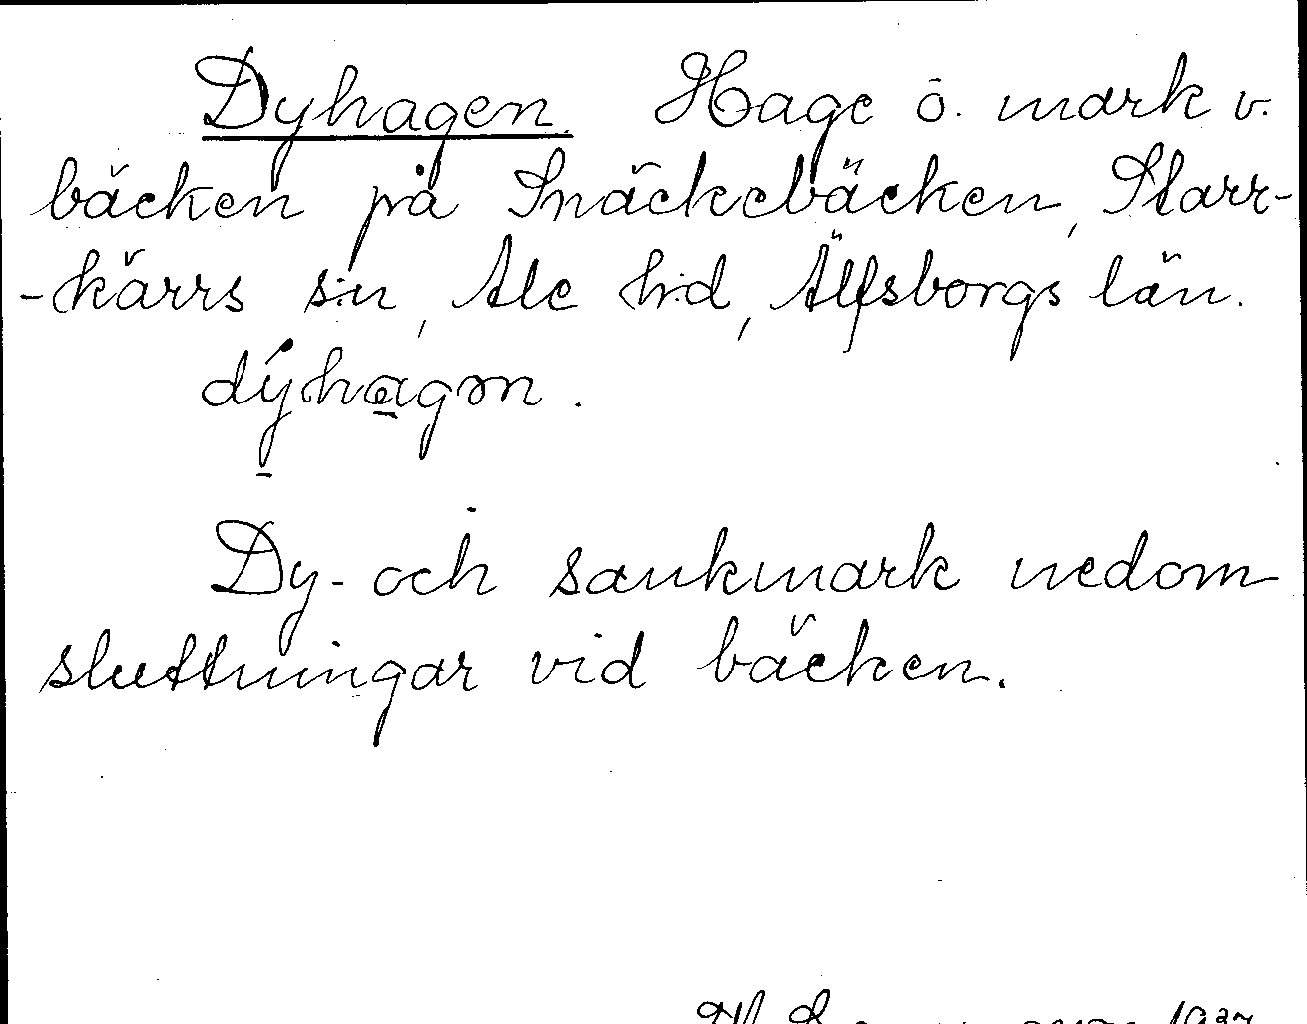 Dyhagen. Hage ö. mark v.
bäcken på Snäckebäcken, Starr-
-kärrs s:n, Ale h:d, Älfsborgs län.
dýhagən.
Dy- och sankmark nedom
sluttningar vid bäcken.
1937